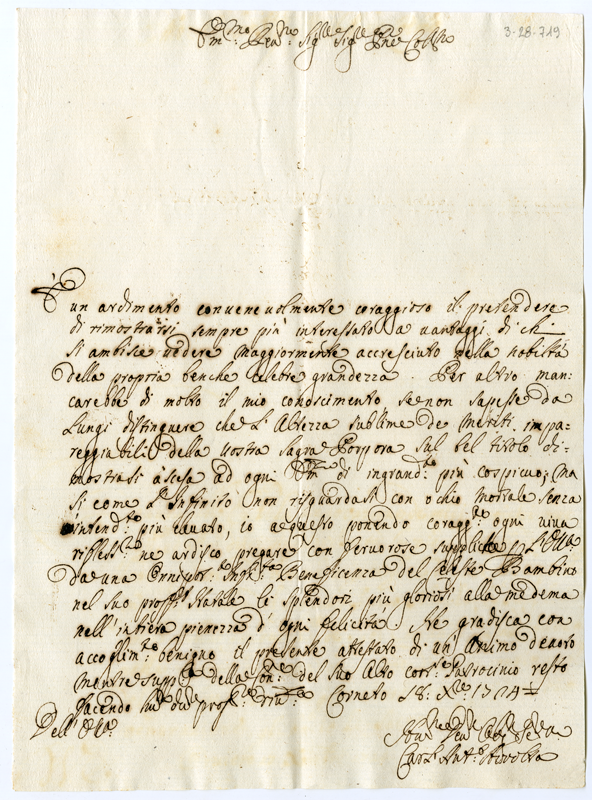 3-28-719
Em:mo Rev:mo Sig:re Sig:re Pne Coll:mo
È un ardimento convenevolmente coraggioso il pretendere
di rimostrarsi sempre più interessato a vantaggi di chi
si ambisce vedere maggiormente accresciuto nella nobiltà
della propria benche celebre grandezza. Per altro man:
carebbe di molto il mio conoscimento se non sapesse da
Lungi distinguere che l'Altezza sublime de Meriti impa:
reggiabili della vostra Sagra Porpora sul bel titolo di:
mostrasi ascesa ad ogni di ingrand:to più cospicuo; Ma
si come l'Infinito non risguardasi con ochio mortale senza
intend:to più elevato, io a questo ponendo coragg:to ogni viva
rifless:ne ne ardisco pregare con fervorose suppliche
da una Beneficenza del Celeste Bambino
nel suo pross:o Natale li splendori più gloriosi alla medema
nell'intiera pienezza d'ogni felicità. Ne gradisca con
accoglim:to benigno il presente attestato di un'Animo devoto
mentre della del suo Alto Patrocinio resto
facendo Corneto 18: X:re 1704
Dell' E.V.
Hu:mo Dev:mo Serv:re
Ant:o